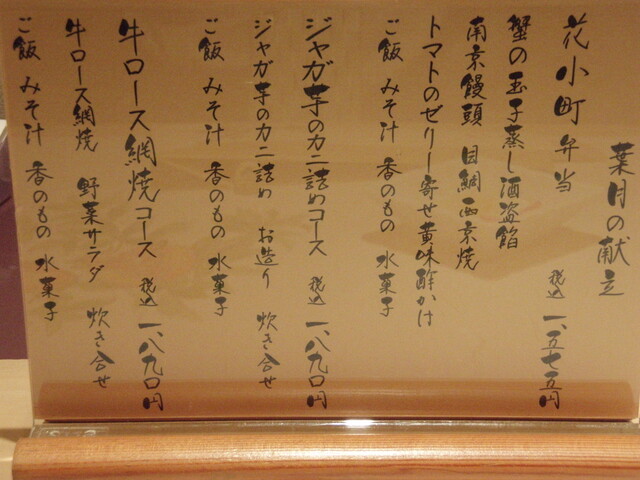 葉月の献立
花小町弁当 税込 一、五七五円
蟹の玉子蒸し酒盗餡
南京饅頭 目鯛西京焼
トマトのゼリー寄せ黄味酢かけ
ご飯 みそ汁 香のもの 水菓子
ジャガ芋のカニ詰めコース 税込 一、八九〇円
ジャガ芋のカニ詰め お造り 炊き合せ
ご飯 みそ汁 香のもの 水菓子
牛ロース網焼コース 税込 一、八九〇円
牛ロース網焼 野菜サラダ 炊き合せ
ご飯 みそ汁 香のもの 水菓子